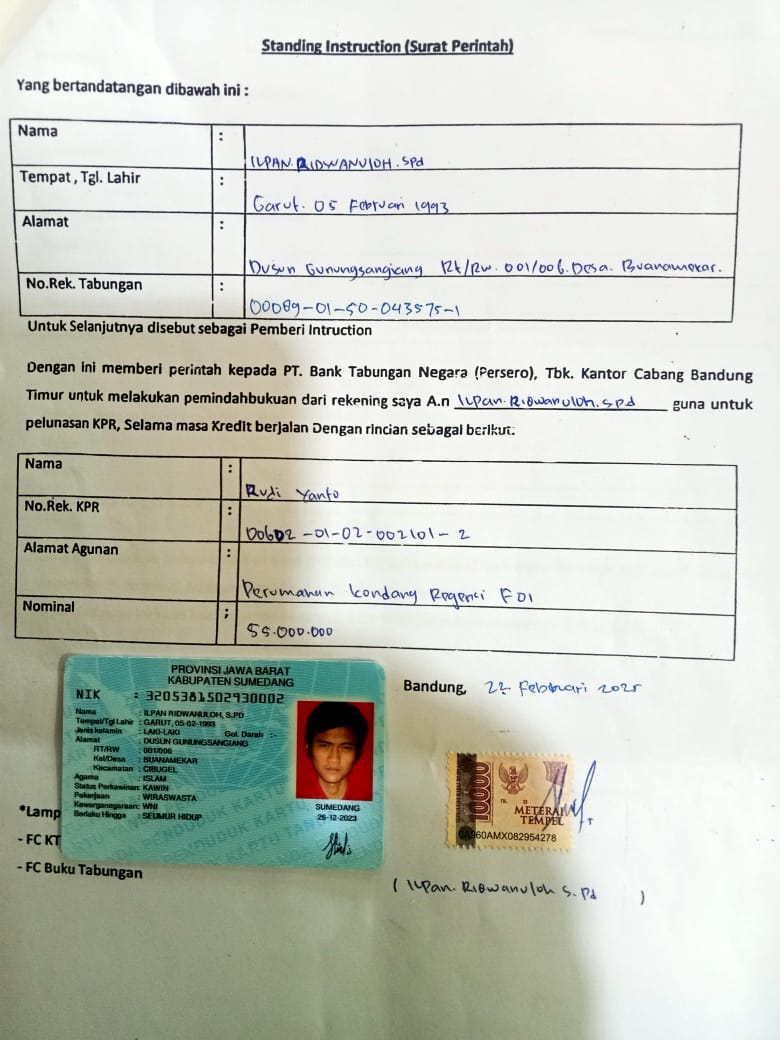 Standing Instruction (Surat Perintah)
Yang bertandatangan dibawah ini :
Nama : ILPAN.RIDWANULOH.Spd
Tempat , Tgl. Lahir : Garut. 05 Februari 1993
Alamat : Dusun Gunungsangiang Rt/Rw. 001/006.Desa. Buanamekar.
No.Rek. Tabungan : 00089-01-50-043575-1
Untuk Selanjutnya disebut sebagai Pemberi Intruction
Dengan ini memberi perintah kepada PT. Bank Tabungan Negara (Persero), Tbk. Kantor Cabang Bandung
Timur untuk melakukan pemindahbukuan dari rekening saya A.n Ilpan.Ridwanuloh.Spd guna untuk
pelunasan KPR, Selama masa Kredit berjalan Dengan rincian sebagai berikut:
Nama : Rudi Yanto
No.Rek. KPR : 00602-01-02-002101-2
Alamat Agunan : Perumahan Kondang Regenci F01
Nominal : 55.000.000
PROVINSI JAWA BARAT
KABUPATEN SUMEDANG
NIK : 3205381502930002
Nama : ILPAN RIDWANULOH, S.PD
Tempat/Tgl Lahir : GARUT, 05-02-1993
Jenis kelamin : LAKI-LAKI Gol. Darah : -
Alamat : DUSUN GUNUNGSANGIANG
RT/RW : 001/006
Kel/Desa : BUANAMEKAR
Kecamatan : CIBUGEL
Agama : ISLAM
Status Perkawinan: KAWIN
Pekerjaan : WIRASWASTA
Kewarganegaraan: WNI
Berlaku Hingga : SEUMUR HIDUP
SUMEDANG
26-12-2023
Bandung, 22 Februari 2025
10000
METERAI
TEMPEL
0A960AMX082954278
(Ilpan.Ridwanuloh S.Pd)
*Lamp
- FC KT
- FC Buku Tabungan